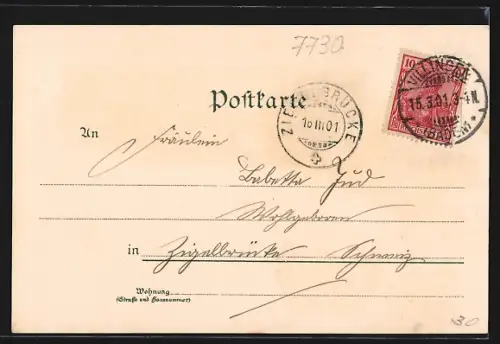 7730
10
VILLINGEN
15.3.01.3-4N.
(BADEN) *
Postkarte
ZIEGELBRÜCKE
16 III 01
An Fräulein
Babetta Jud
Wohlgeboren
in Zigelbrüke Schweiz
Wohnung
(Straße und Hausnummer)
30